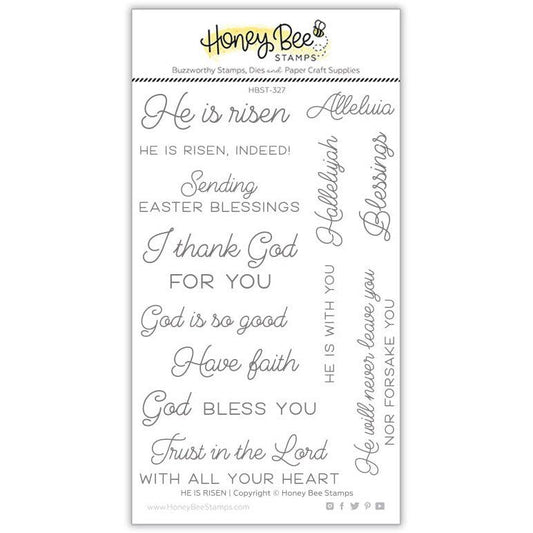 Honey Bee
STAMPS
Buzzworthy Stamps, Dies and Paper Craft Supplies
HBST-327
He is risen
Alleluia
HE IS RISEN, INDEED!
Hallelujah
Blessings
Sending
EASTER BLESSINGS
I thank God
FOR YOU
HE IS WITH YOU
He will never leave you
NOR FORSAKE YOU
God is so good
Have faith
God BLESS YOU
Trust in the Lord
WITH ALL YOUR HEART
HE IS RISEN | Copyright © Honey Bee Stamps
www.HoneyBeeStamps.com